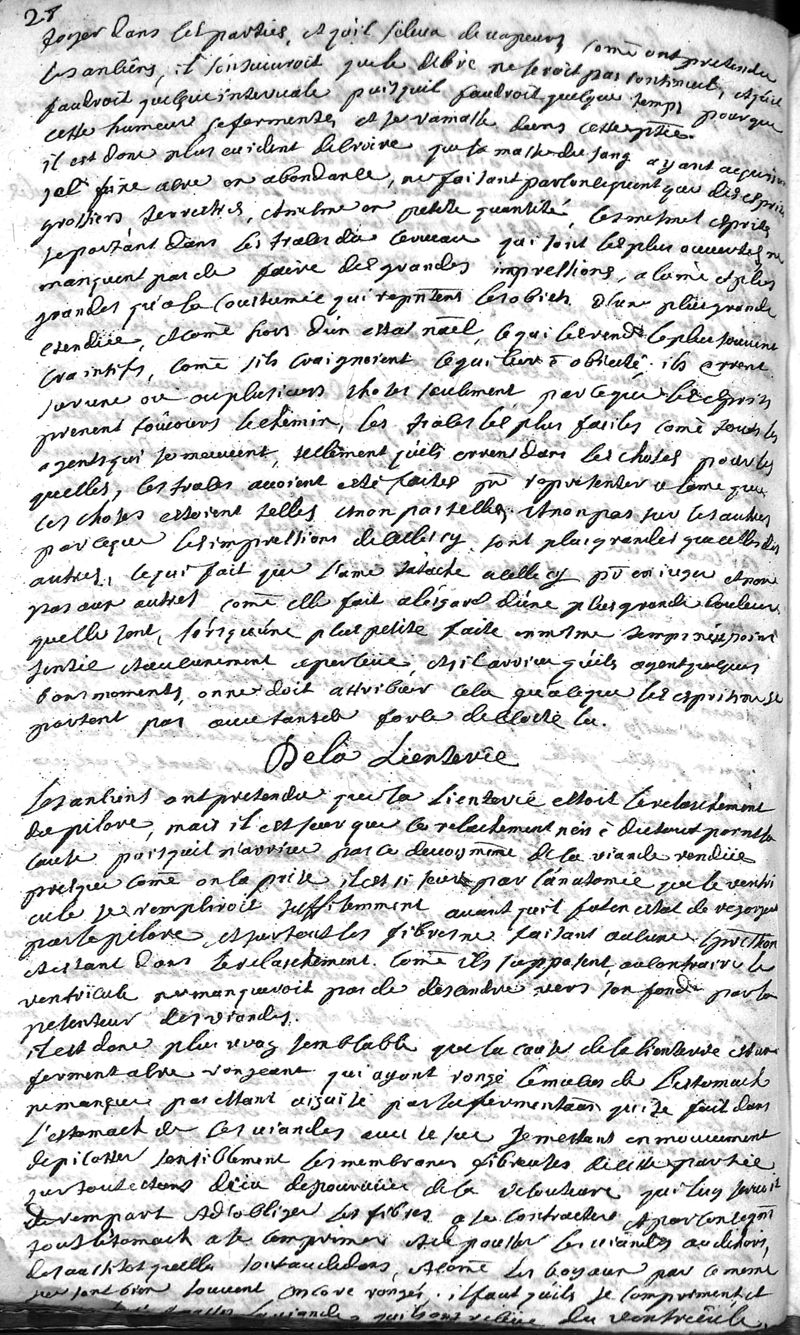 28
foyer dans ces parties, et quil seleva des vapeurs, come ont pretendu
les anciens, il sensuivroit que le delire ne seroit pas continuel, et quil
faudroit quelque intervale puisquil faudroit quelque temps pour que
cette humeur se fermente, et se ramasse dans cette ptie.
il est donc plus evident de croire que la masse du sang ayant acquis un
sel fixe acre en abondance, ne faisant par consequent que des esprits
grossiers terrestres, et mesme en petite quantité, les mesmes esprits
se portant dans les traces du cerveau qui sont les plus ouvertes, ne
manquent pas de faire des grandes impressions, a lame et plus
grandes qua la coustumée qui representent les obiets d'une plus grande
etendüe, et come hors d'un estat nael, ce qui les rend le plus souvent
craintifs, come sils craignoient ce qui leur è obiecté. ils errent
sur une ou plusieurs choses seulement parceque les esprits
prenent toûiours le chemin, les traces les plus faciles come tous les
agents qui se meuvent, tellement quils errent dans les choses pour les
quelles, les traces avoient esté faites pr representer a lame que
ces choses estoient telles et non pas telles. et non pas sur les autres
parceque les impressions de celles cy sont plus grandes que celles des
autres, ce qui fait que l'ame satache a celle cy pr en iuger et non
pas aux autres come elle fait a legard d'une plus grande douleur
quelle sent, lorsquune plus petite faite en mesme temps nest point
sentie et aucunement aperceüe, et sil arrive quils ayent quelques
bons moments, on ne doit attribuer cela qua ce que les esprits ne se
portent pas avec tant de force de ce costé la.
De la Lienterie
Les anciens ont pretendu que la Lienterie estoit le relaschement
du pilore, mais il est seur que ce relachement n'en è du tout point la
cause puisquil n'arrive pas ce de la viande rendüe
presque come on la prise il est si seur par l'anatomie que le ventri
cule se rempliroit suffisemment avant quil fut en estat de regorger
par le pilore et surtout les fibres ne faisant aucune
estant dans le relaschement. come ils suposent, au contraire le
ventricule ne manqueroit pas de desandre vers son fonds par la
pesenteur des viandes.
il est donc plus vray semblable que la cause de la lienterie est un
ferment acre rongeant qui ayant rongé le mucus de l'estomach
ne manque pas estant aiguisé par la fermentaon qui se fait dans
l'estomach de ces viandes avec ce suc se mettant en mouvement
de picotter sensiblement les membranes fibreuses de cette partie
surtout estans deia depourveüe de la velouteure qui luy servoit
de rempart et d'obliger les fibres a se contracter et par consequent
tout lestomach a se comprimer et de pousser les viandes au dehors,
des aussitost quelles sont au dedans, et come les boyaux par ce mesme
suc sont bien souvent encore rongés. il faut quils se compriment et
les viandes quils ont receüe du ventricule